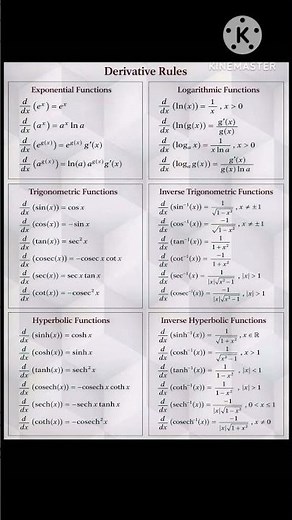 KINEMASTER
Derivative Rules
Exponential Functions
d/dx (e^x) = e^x
d/dx (a^x) = a^x ln a
d/dx (e^g(x)) = e^g(x) g′(x)
d/dx (a^g(x)) = ln(a) a^g(x) g′(x)
Logarithmic Functions
d/dx (ln(x)) = 1/x , x > 0
d/dx (ln(g(x)) = g′(x)/g(x)
d/dx (log_a x) = 1/(x ln a) , x > 0
d/dx (log_a g(x)) = g′(x)/(g(x) ln a)
Trigonometric Functions
d/dx (sin(x)) = cos x
d/dx (cos(x)) = −sin x
d/dx (tan(x)) = sec² x
d/dx (cosec(x)) = −cosec x cot x
d/dx (sec(x)) = sec x tan x
d/dx (cot(x)) = −cosec² x
Inverse Trigonometric Functions
d/dx (sin⁻¹(x)) = 1/√(1−x²) , x ≠ ±1
d/dx (cos⁻¹(x)) = −1/√(1−x²) , x ≠ ±1
d/dx (tan⁻¹(x)) = 1/(1+x²)
d/dx (cot⁻¹(x)) = −1/(1+x²)
d/dx (sec⁻¹(x)) = 1/(|x|√(x²−1)) , |x| > 1
d/dx (cosec⁻¹(x)) = −1/(|x|√(x²−1)) , |x| > 1
Hyperbolic Functions
d/dx (sinh(x)) = cosh x
d/dx (cosh(x)) = sinh x
d/dx (tanh(x)) = sech² x
d/dx (cosech(x)) = −cosech x coth x
d/dx (sech(x)) = −sech x tanh x
d/dx (coth(x)) = −cosech² x
Inverse Hyperbolic Functions
d/dx (sinh⁻¹(x)) = 1/√(1+x²) , x ∈ ℝ
d/dx (cosh⁻¹(x)) = 1/√(x²−1) , x > 1
d/dx (tanh⁻¹(x)) = 1/(1−x²) , |x| < 1
d/dx (coth⁻¹(x)) = 1/(1−x²) , |x| > 1
d/dx (sech⁻¹(x)) = −1/(x√(1−x²)) , 0 < x ≤ 1
d/dx (cosech⁻¹(x)) = −1/(|x|√(1+x²)) , x ≠ 0